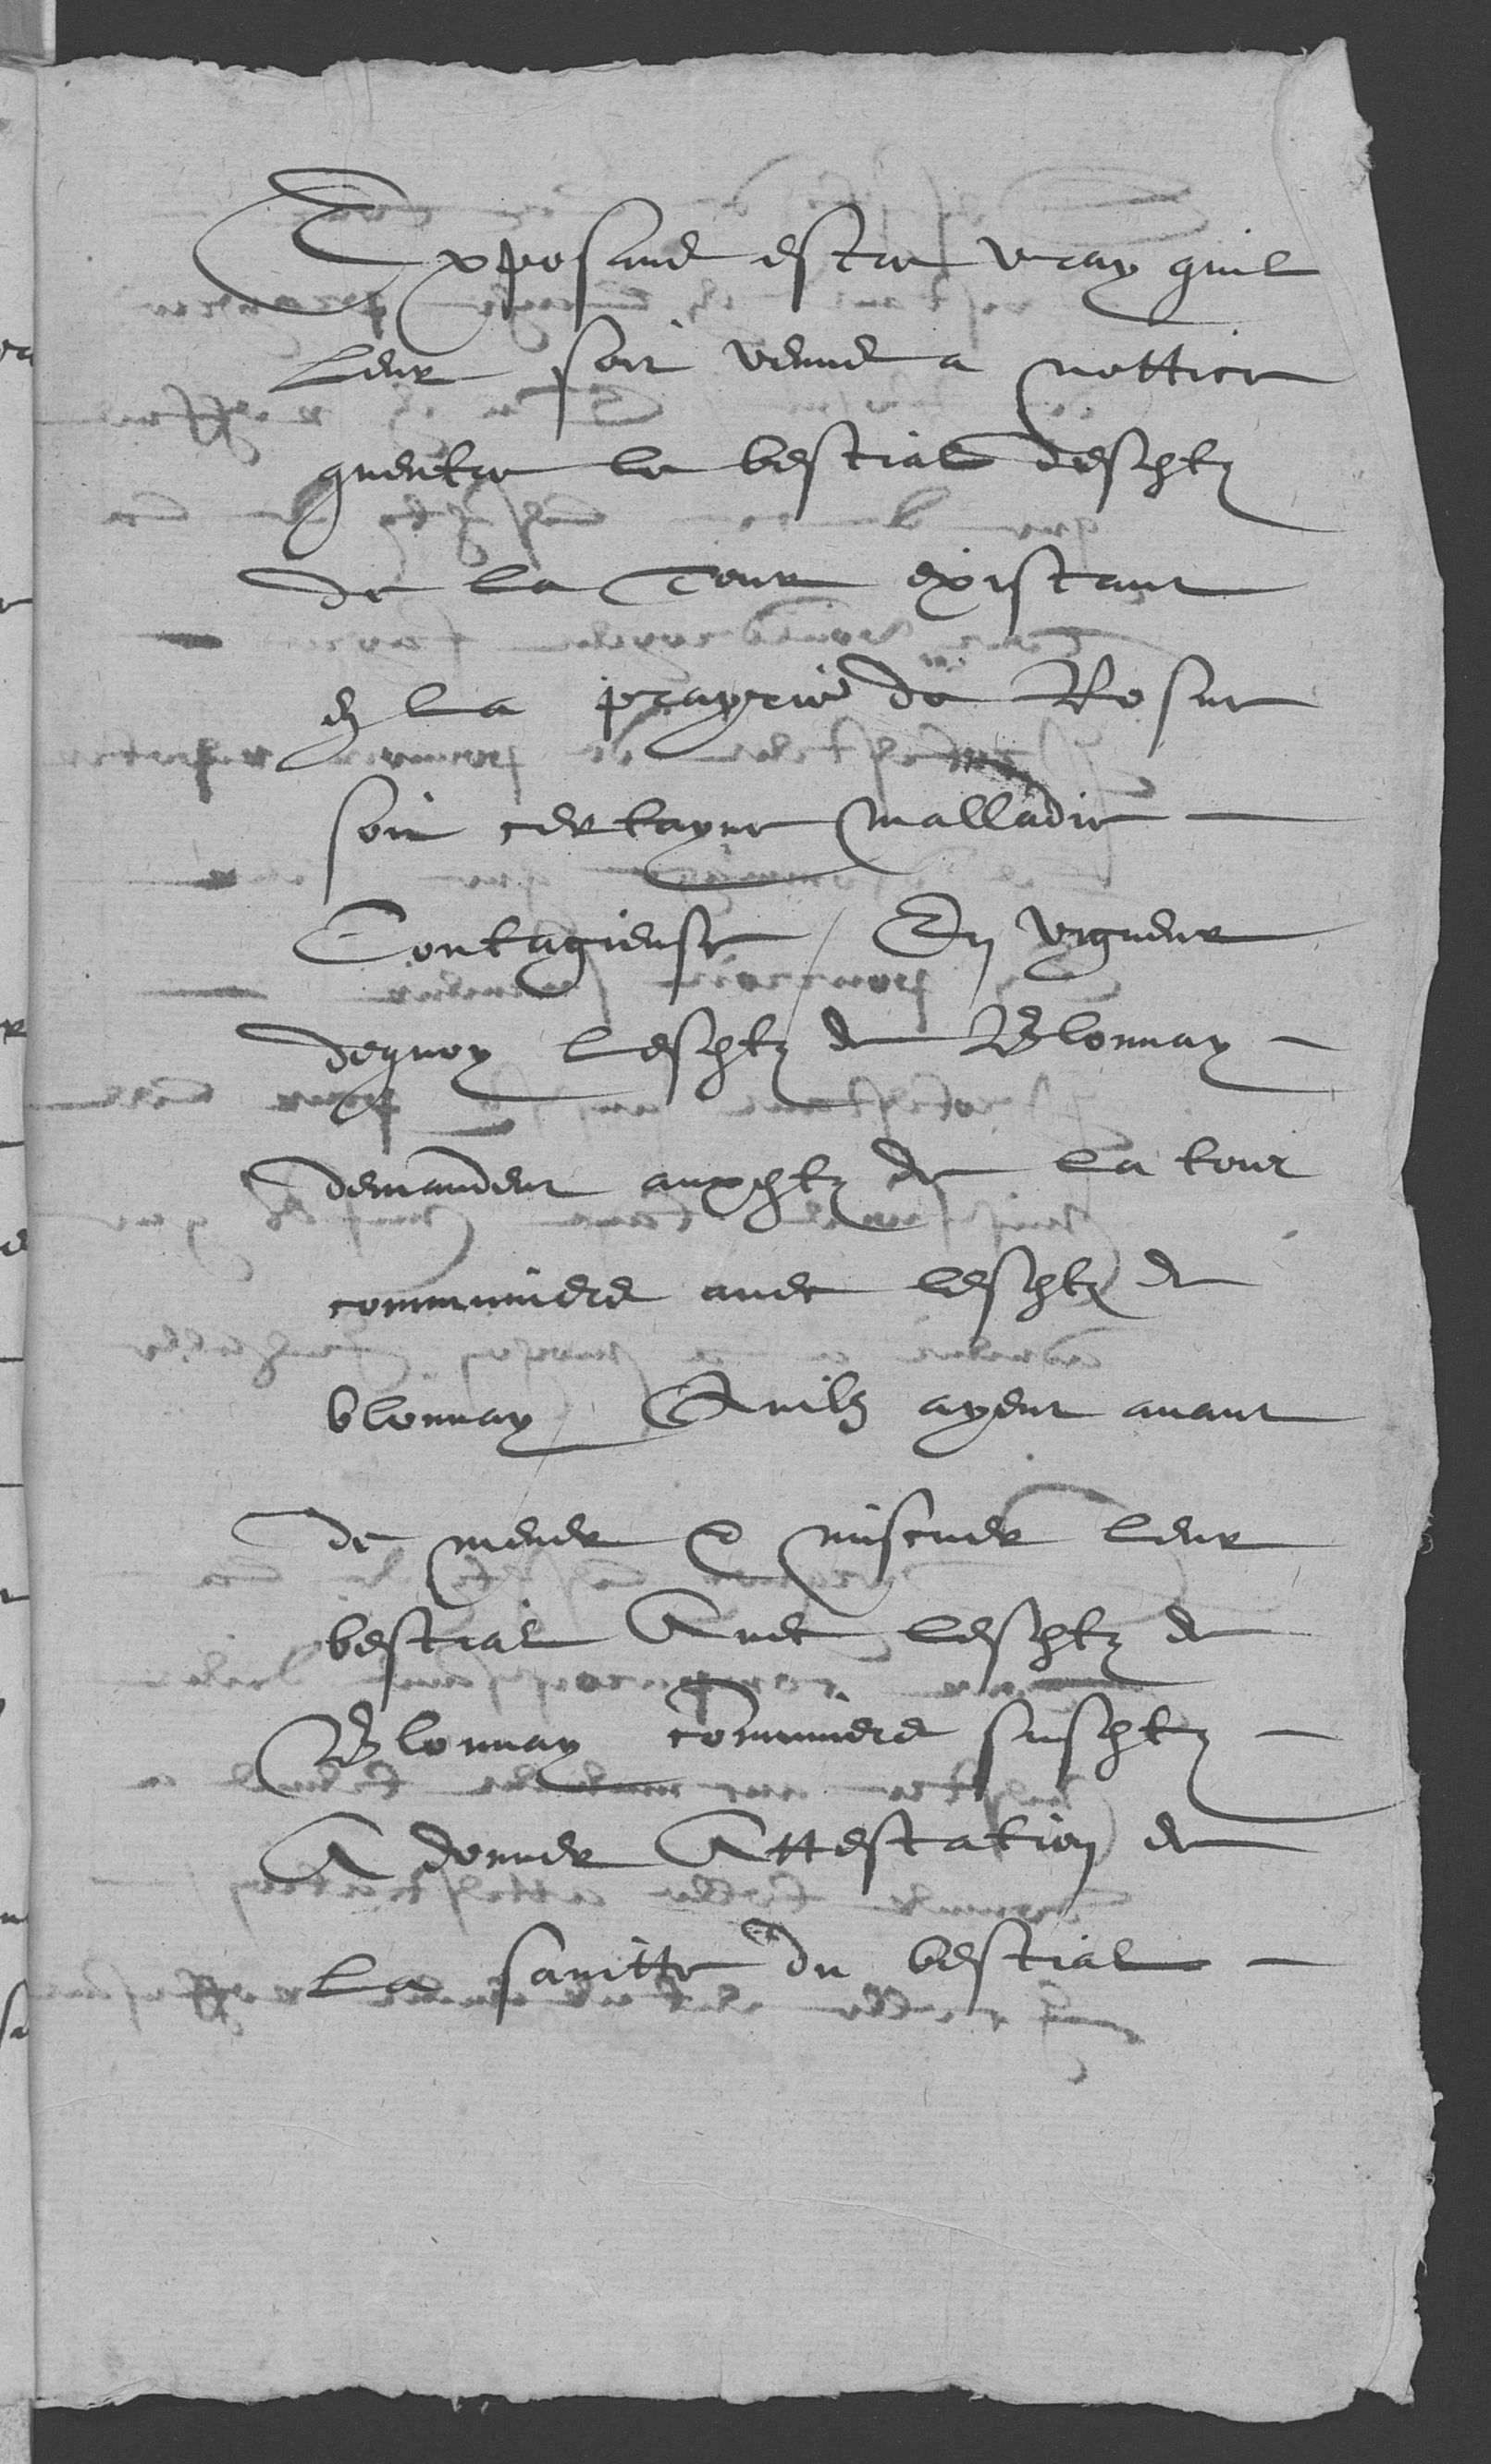 Exposand estre vray quil
leur soit venud a nottice
quentre le bestial deschtz
de la Tour existant
en la prayrie de
soit certayne malladie
Contagieuse / En vigueur
dequoy leschtz de Blonnay
demandent auxchtz de la tour
communiers avec leschtz de
blonnay / Quilz ayent avant
de mener & miscuer leur
bestial Avec leschtz de
Blonnay communiers suschtz
A donner Attestation de
La sanitte du bestial